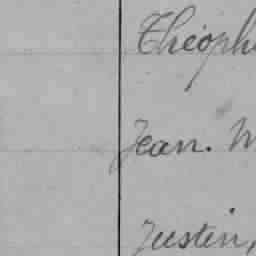 Théoph
Jean. M
Justin,